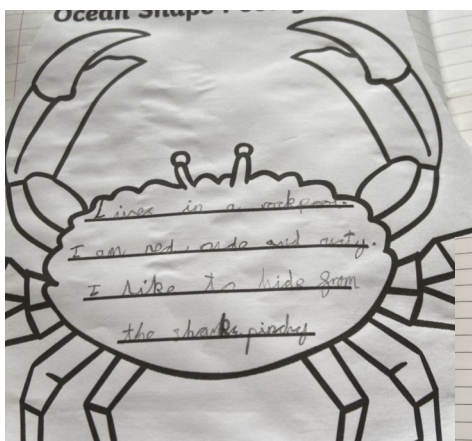 Ocean Shape Poetry
I lives in a rockpool.
I am red, and rusty.
I like to hide from
the sharks pinchy